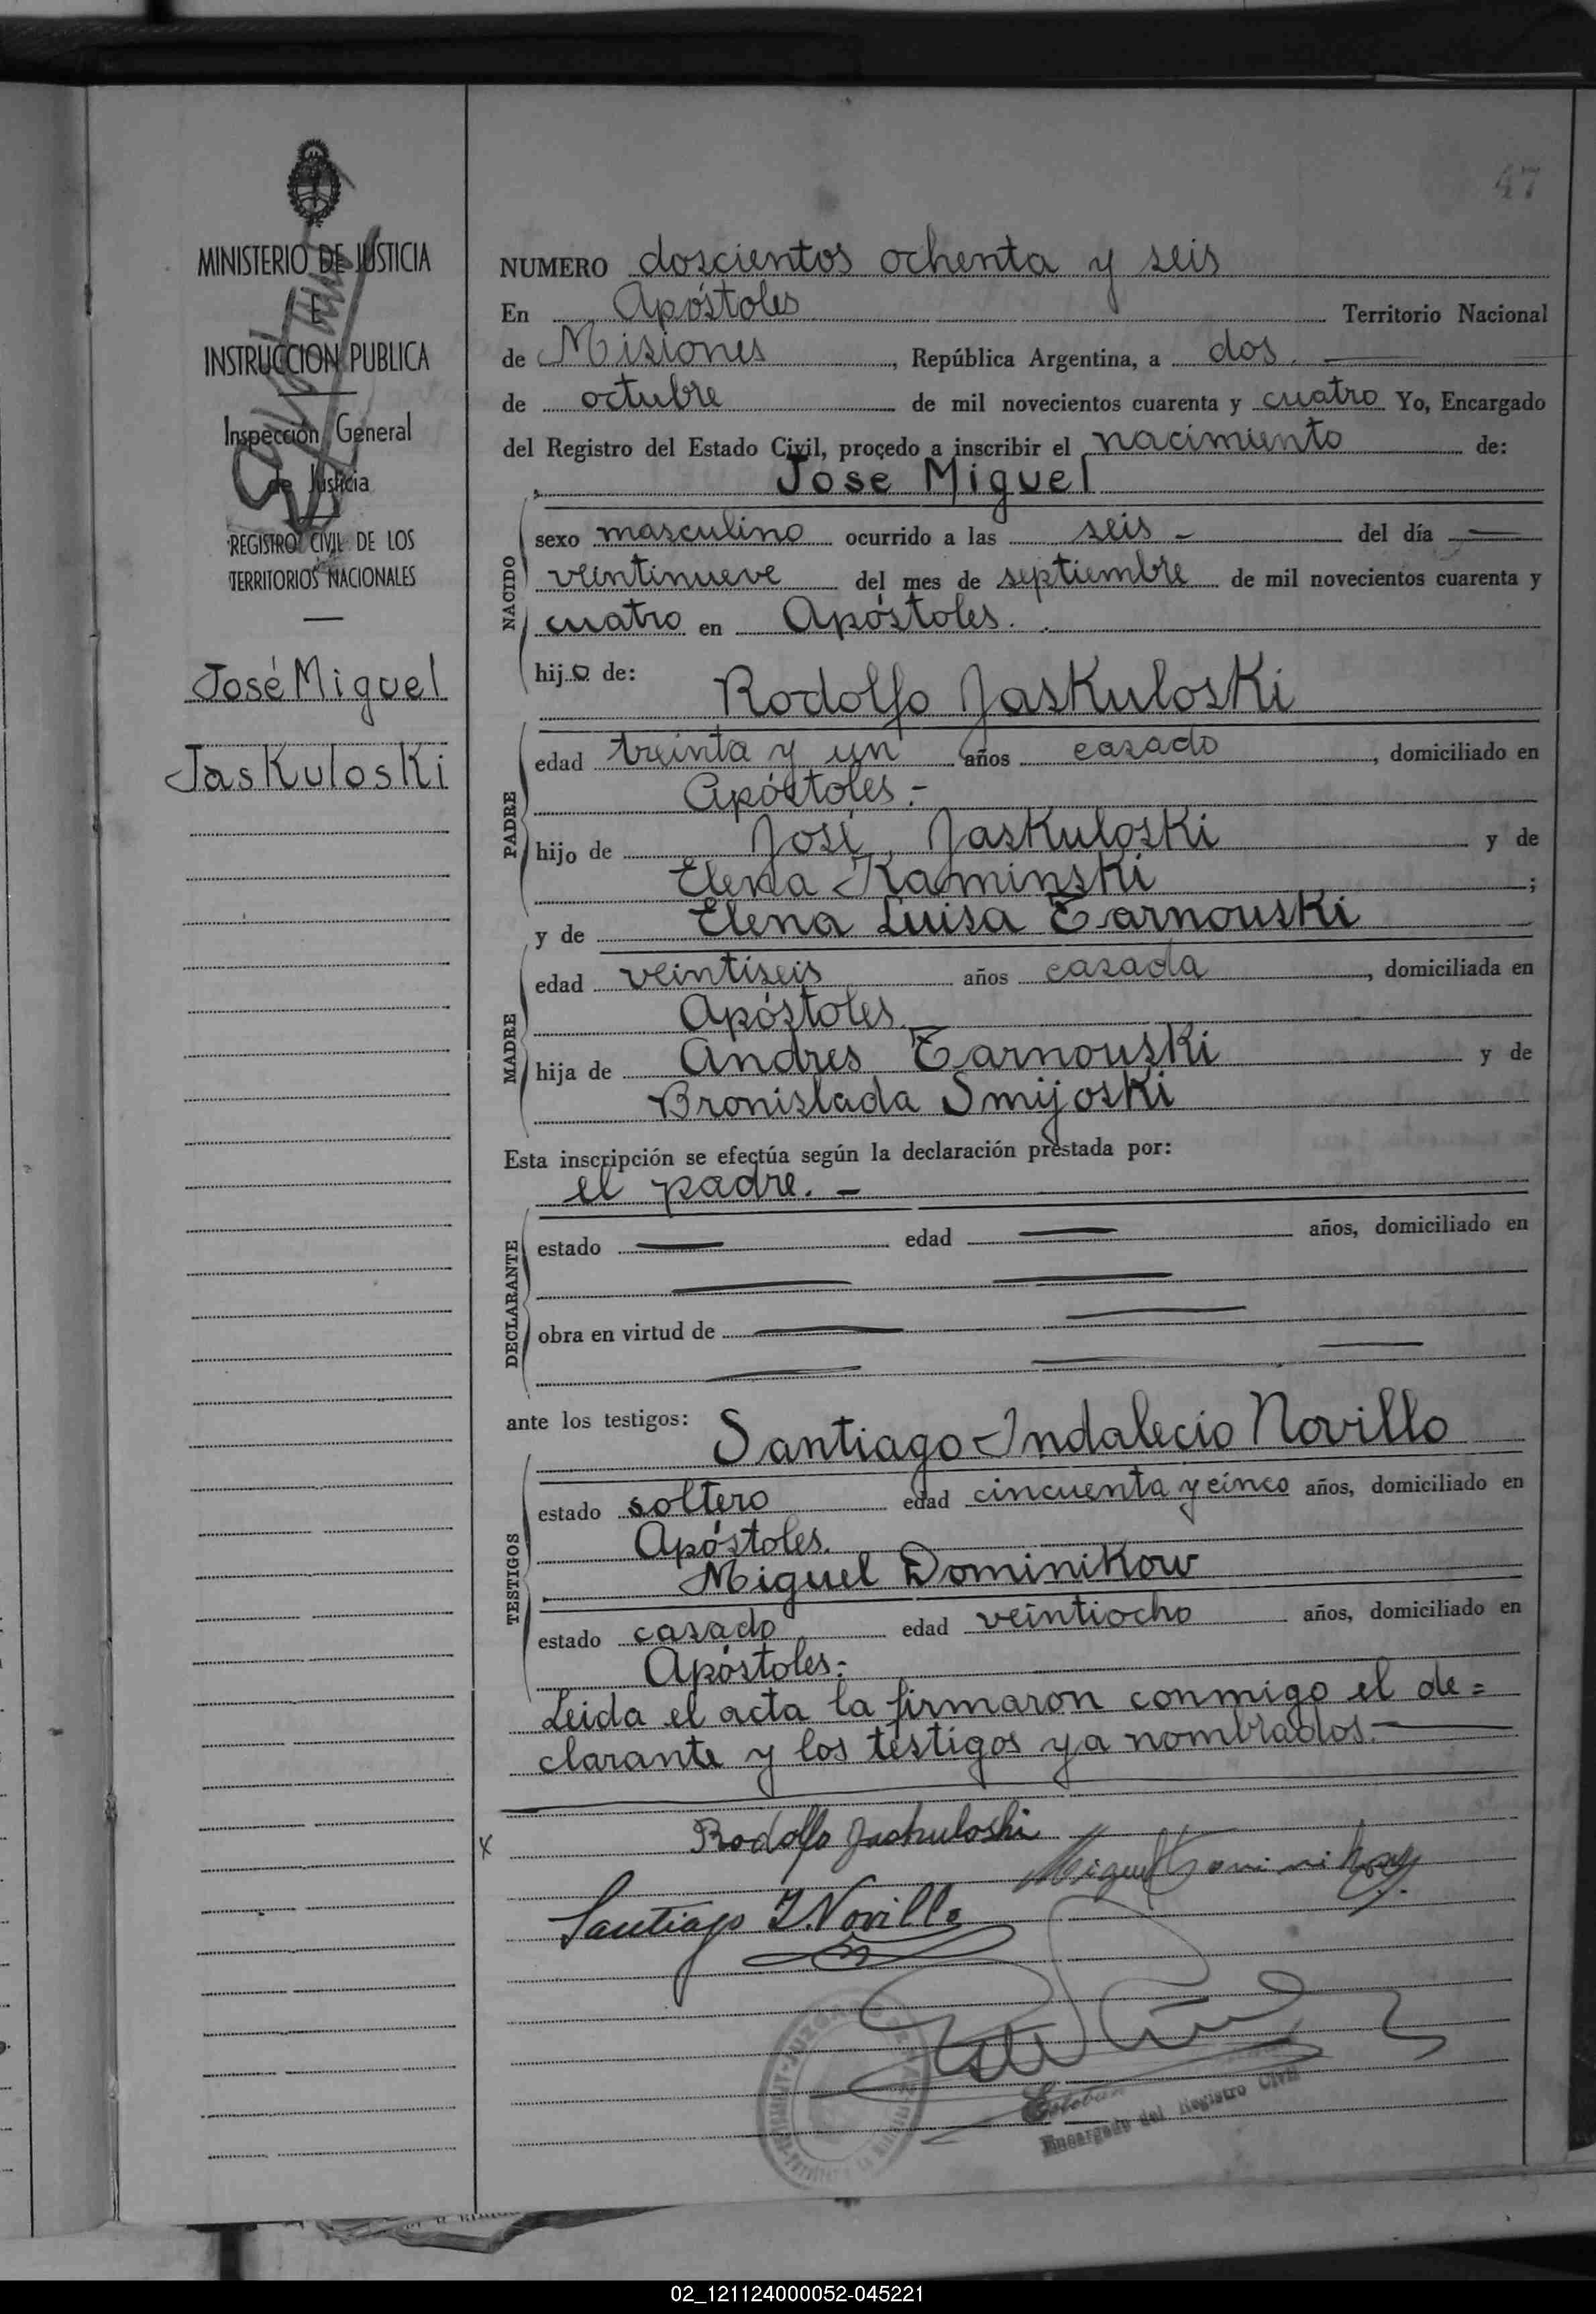 47
MINISTERIO DE JUSTICIA
E
INSTRUCCION PUBLICA
Inspección General
de Justicia
REGISTRO CIVIL DE LOS
TERRITORIOS NACIONALES
José Miguel
Jaskuloski
NUMERO doscientos ochenta y seis
En Apóstoles Territorio Nacional
de Misiones, República Argentina, a dos.
de octubre de mil novecientos cuarenta y cuatro Yo, Encargado
del Registro del Estado Civil, procedo a inscribir el nacimiento de:
Jose Miguel
NACIDO
sexo masculino ocurrido a las seis - del día
veintinueve del mes de septiembre de mil novecientos cuarenta y
cuatro en Apóstoles.
hijo de:
Rodolfo Jaskuloski
PADRE
edad treinta y un años casado, domiciliado en
Apóstoles.-
hijo de José Jaskuloski y de
Elena Kaminski;
y de Elena Luisa Tarnouski
MADRE
edad veintiseis años casada, domiciliada en
Apóstoles.
hija de Andres Tarnouski y de
Bronislada Smijoski
Esta inscripción se efectúa según la declaración prestada por:
el padre. -
DECLARANTE
estado edad años, domiciliado en
obra en virtud de
ante los testigos: Santiago Indalecio Novillo
TESTIGOS
estado soltero edad cincuenta y cinco años, domiciliado en
Apóstoles.
Miguel Dominikow
estado casado edad veintiocho años, domiciliado en
Apóstoles.-
Leida el acta la firmaron conmigo el de=
clarante y los testigos ya nombrados.-
x Rodolfo Jaskuloski
Santiago I. Novillo
Esteban
Encargado del Registro Civil
02_121124000052-045221